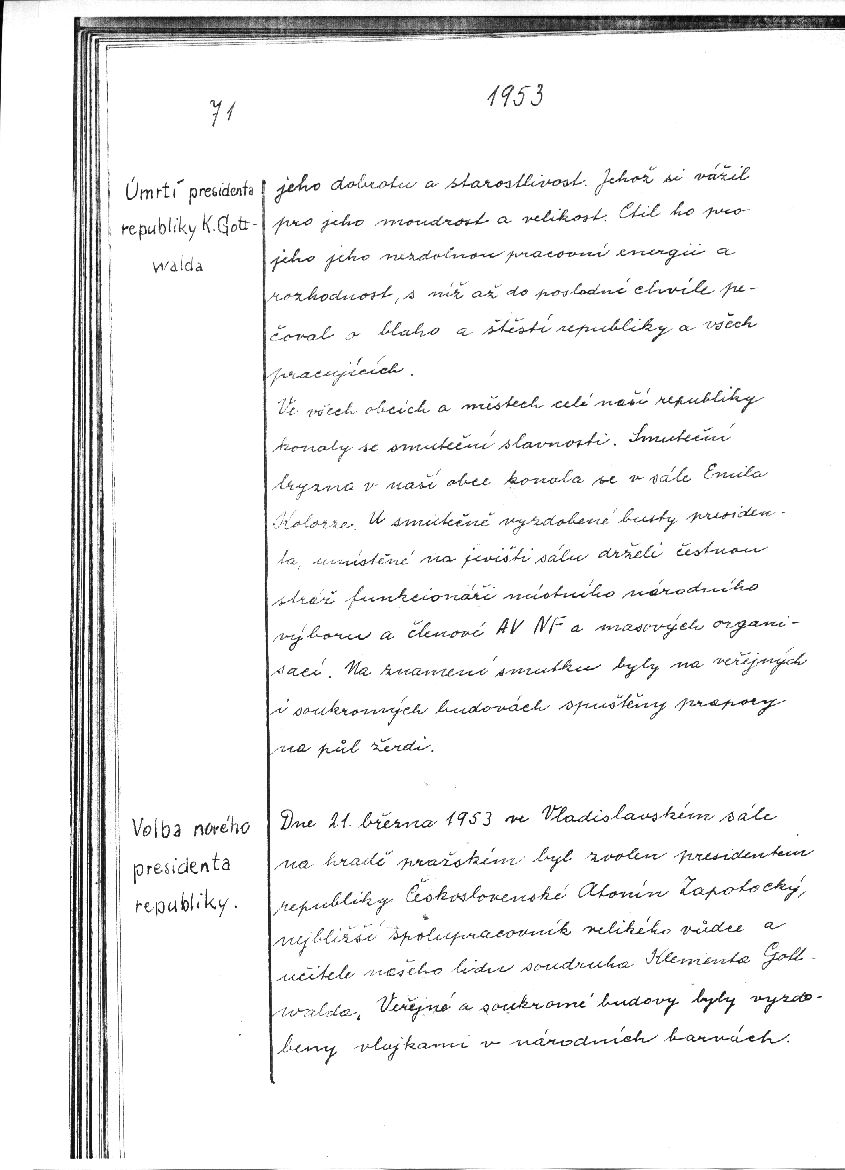 71
1953
Úmrtí presidenta
republiky K. Gott-
walda
jeho dobrotu a starostlivost. Jehož si vážil
pro jeho moudrost a velikost. Ctil ho pro
jeho jeho nezdolnou pracovní energii a
rozhodnost, s níž až do poslední chvíle pe-
čoval o blaho a štěstí republiky a všech
pracujících.
Ve všech obcích a městech celé naší republiky
konaly se smuteční slavnosti. Smuteční
tryzna v naší obce konala se v sále Emila
U smutečně vyzdobené busty presiden-
ta, umístěné na jevišti sálu drželi čestnou
stráž funkcionáři místního národního
výboru a členové AV NF a masových organi-
sací. Na znamení smutku byly na veřejných
i soukromých budovách spuštěny prapory
na půl žerdi.
Volba nového
presidenta
republiky.
Dne 21. března 1953 ve Vladislavském sále
na hradě pražském byl zvolen presidentem
republiky Československé Atonín Zapotocký,
nejbližší spolupracovník velikého vůdce a
učitele našeho lidu soudruha Klementa Gott-
walda. Veřejné a soukromé budovy byly vyzdo-
beny vlajkami v národních barvách.